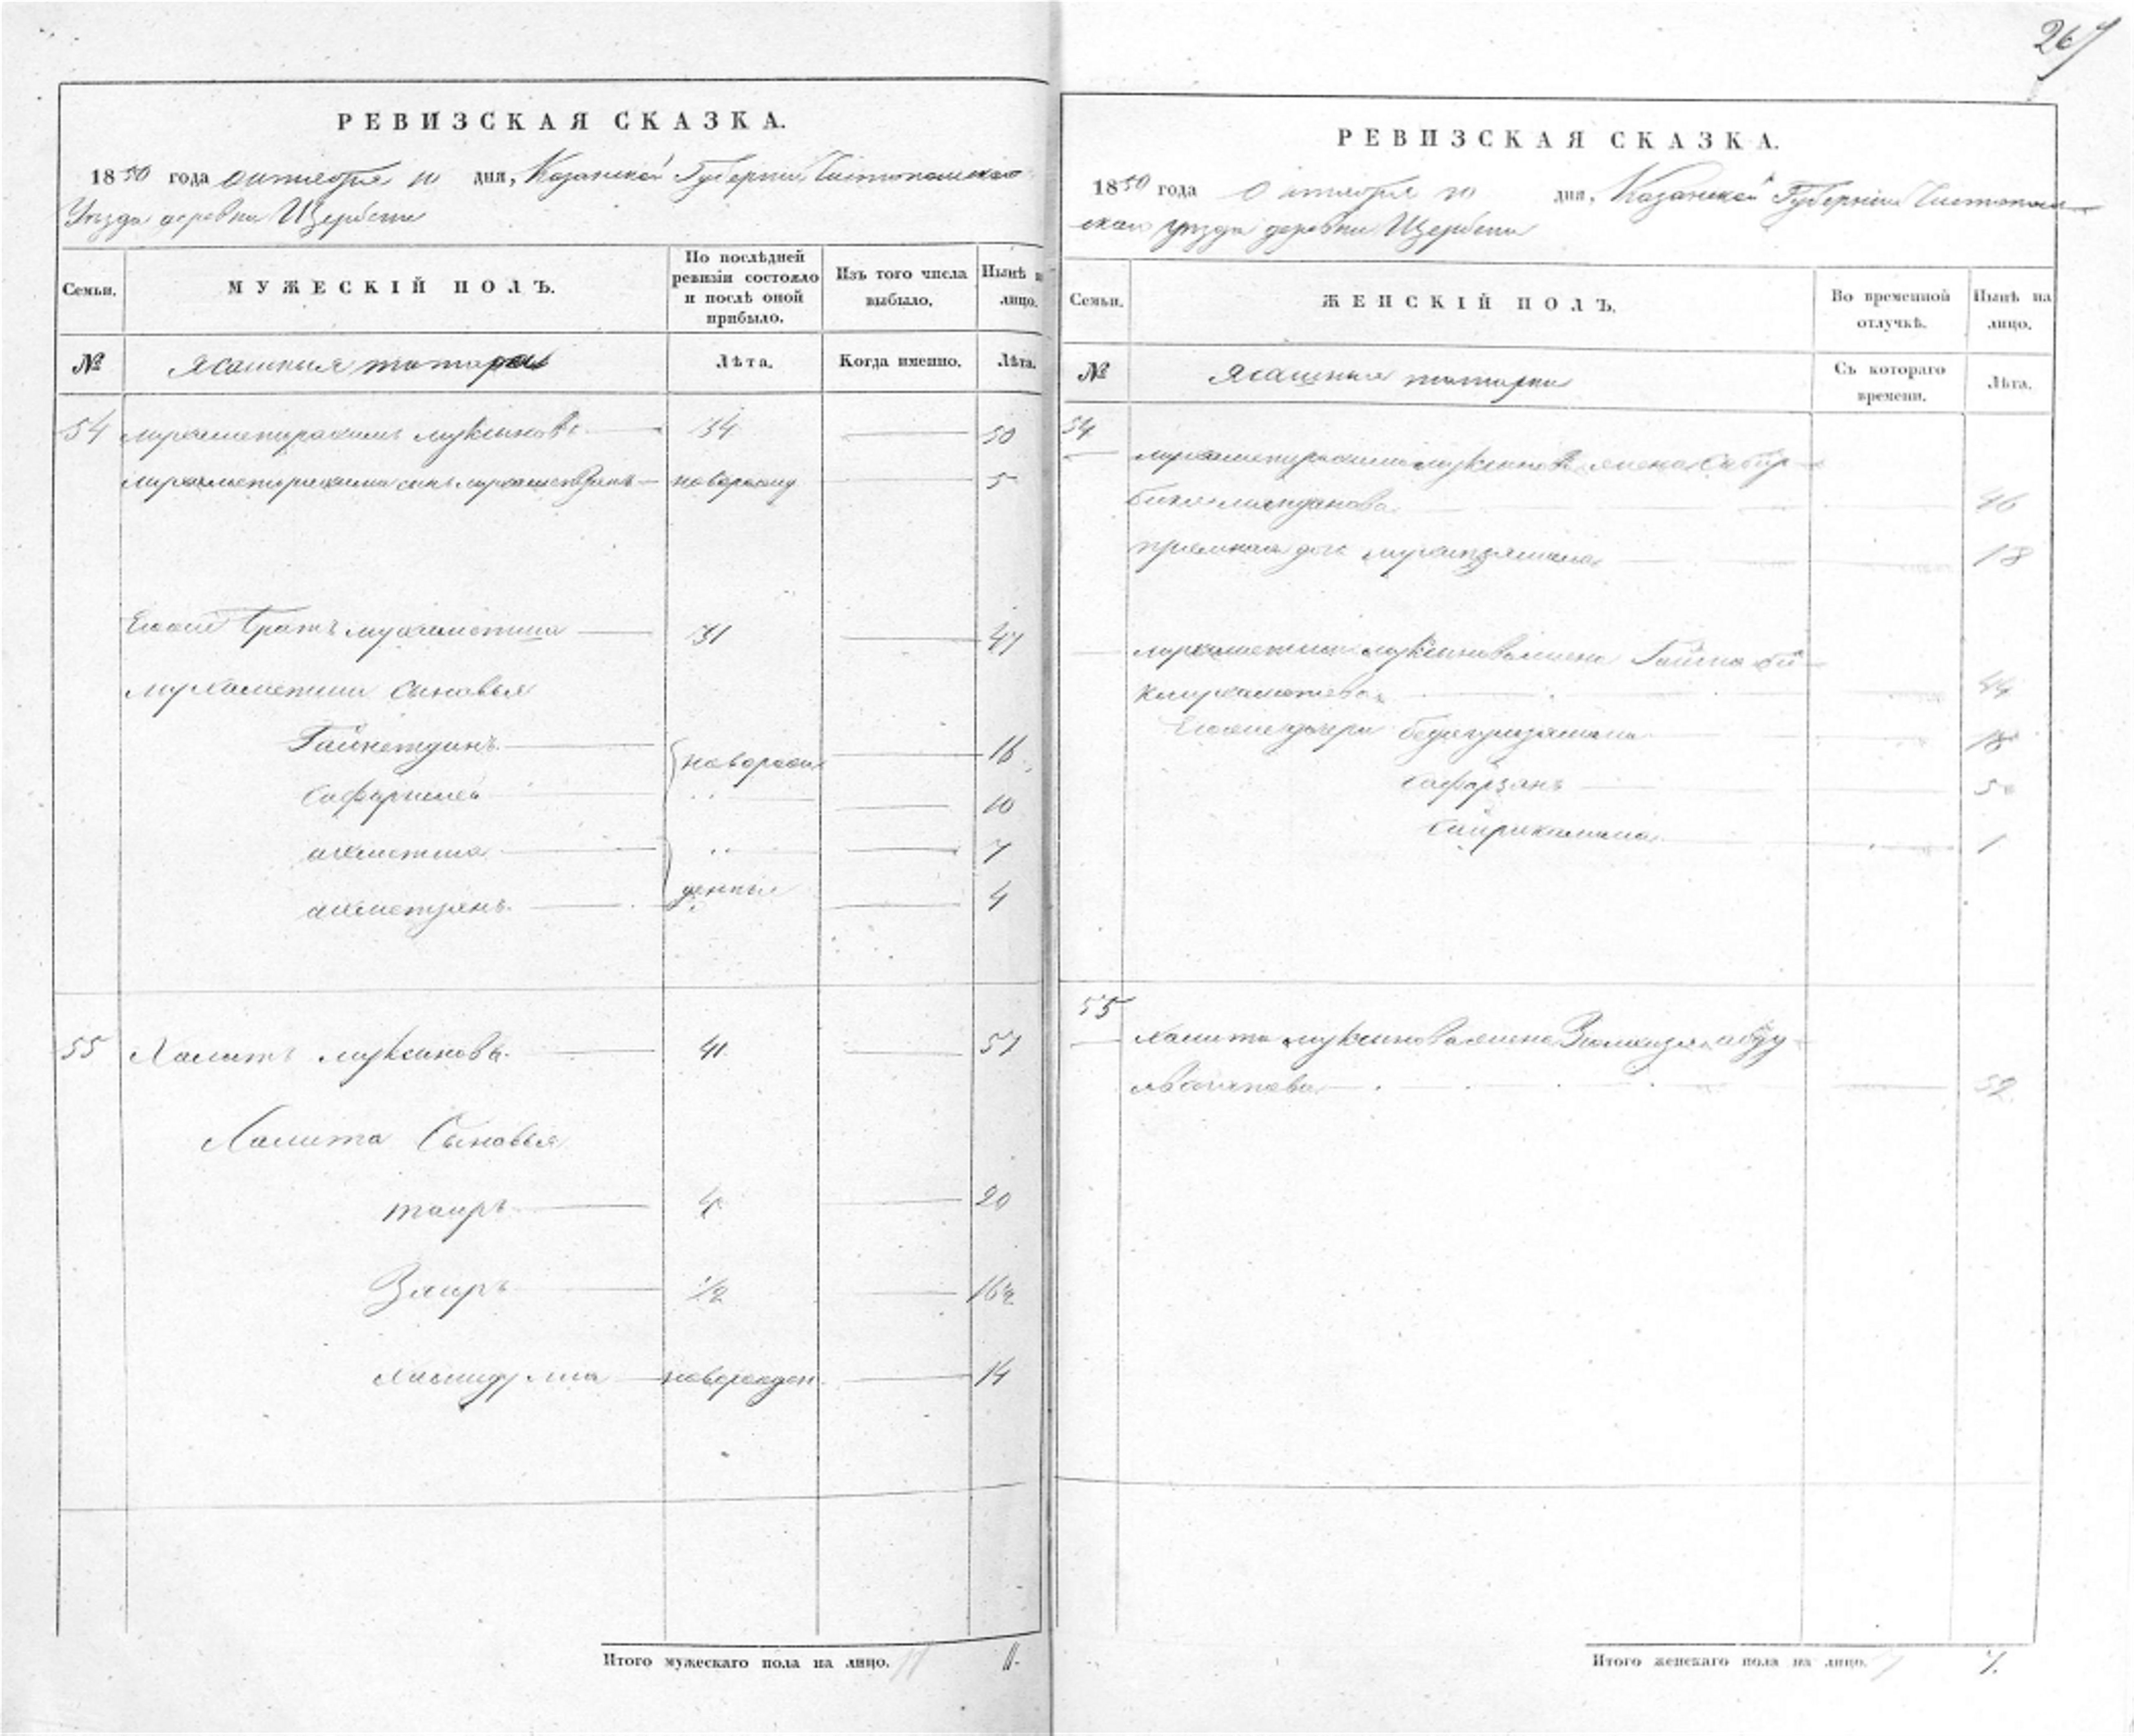 267
РЕВИЗСКАЯ СКАЗКА.
1850 года октября 10 дня, Казанской Губернии Чистопольского
Уезда деревни Щербени
Семьи.
МУЖЕСКІЙ ПОЛЪ.
По послѣдней ревизіи состояло и послѣ оной прибыло.
Изъ того числа выбыло.
Нынѣ на лицо.
№
Ясашныя татары
Лѣта.
Когда именно.
Лѣта.
54 мухаметрахимъ муксиновъ 34 50
мухаметрахима сынъ новорожд 5
Егоже братъ мухаметша 31 47
мухаметши сыновья
Гайнетдинъ новорож 16
Сафаргалей 10
ахметша 7
ахметзянъ денныя 4
55 Хамитъ муксиновъ 41 57
Хамита Сыновья
таиръ 4 20
Заиръ 1/2 16 1/2
хамидулла новорожден 14
Итого мужескаго пола на лицо. 11 11.
РЕВИЗСКАЯ СКАЗКА.
1850 года Октября 10 дня, Казанской Губерніи Чистополь
скаго уезда деревни Щербени
Семьи.
ЖЕНСКІЙ ПОЛЪ.
Во временной отлучкѣ.
Нынѣ на лицо.
№
Ясашныя татарки
Съ котораго времени.
Лѣта.
54
мухаметрахима муксинова жена Сабир
бика 46
приемная дочь 18
мухаметши муксинова жена Гайша би
ка мухаметева 44
Егоже дочери 18
сафарзянъ 5
1
55
Хамита муксинова жена абду
52
Итого женскаго пола на лицо. 7 7.